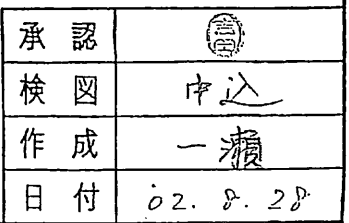 承認
検図 中込
作成 一瀬
日付 '02. 8. 28